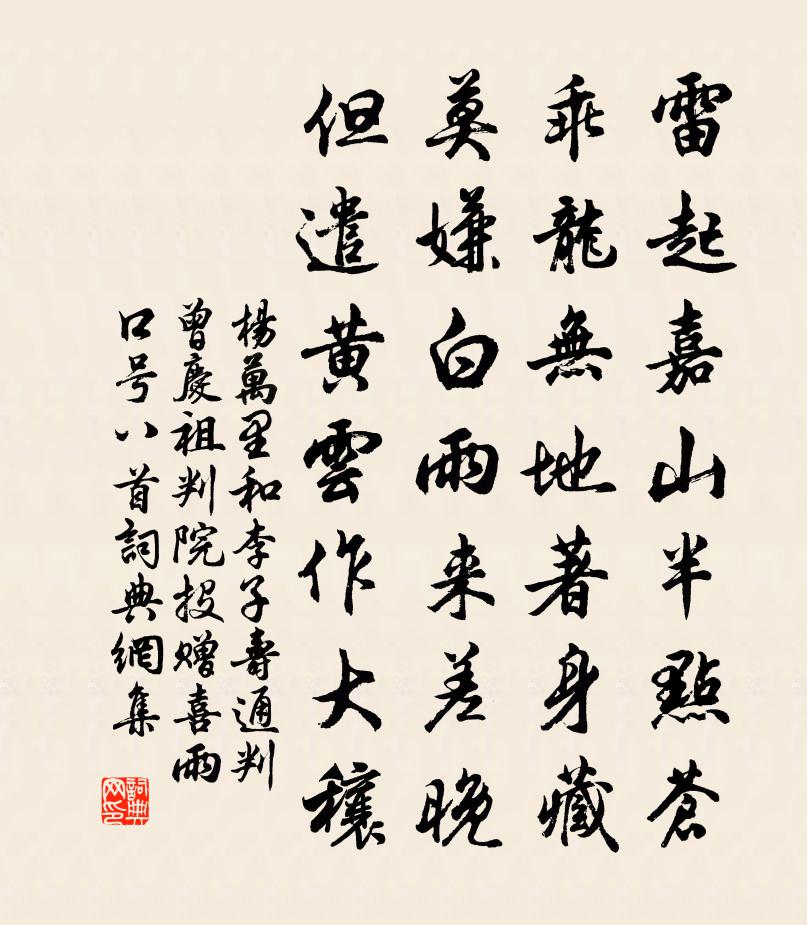 雷起嘉山半點蒼
乖龍無地著身藏
莫嫌白雨来差晚
但遣黄雲作大穰
楊萬里和李子壽通判
曾慶祖判院投赠喜雨
口号八首詞典網集
詞典网印